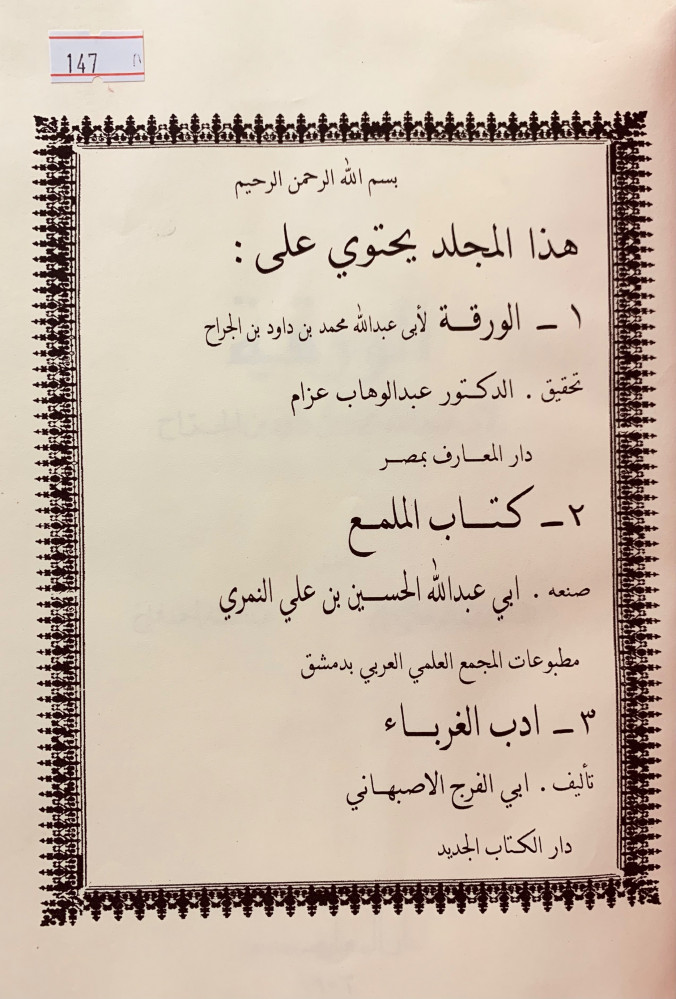 147
بسم الله الرحمن الرحيم
هذا المجلد يحتوي على :
١ ـ الورقة لأبى عبدالله محمد بن داود بن الجراح
تحقيق . الدكتور عبدالوهاب عزام
دار المعارف بمصر
٢ ـ كتاب الملمع
صنعه . ابي عبدالله الحسين بن علي النمري
مطبوعات المجمع العلمي العربي بدمشق
٣ ـ ادب الغرباء
تأليف . ابي الفرج الاصبهاني
دار الكتاب الجديد